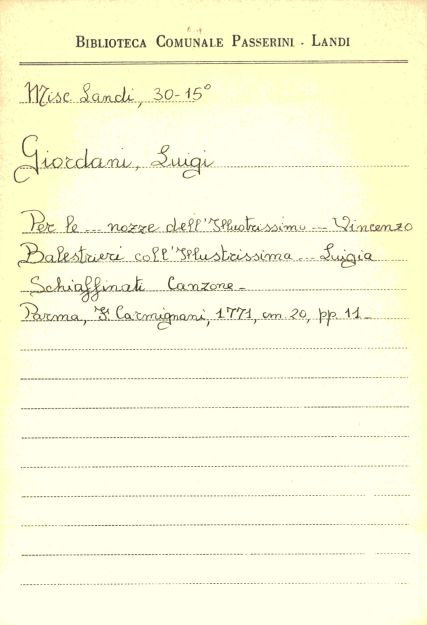 BIBLIOTECA COMUNALE PASSERINI - LANDI
Misc. Landi, 30-15°
Giordani, Luigi
Per le ... nozze dell'Illustrissimo ... Vincenzo
Balestrieri coll'Illustrissima ... Luigia
Schiaffinati Canzone -
Parma, F. Carmignani, 1771, cm. 20, pp. 11 -